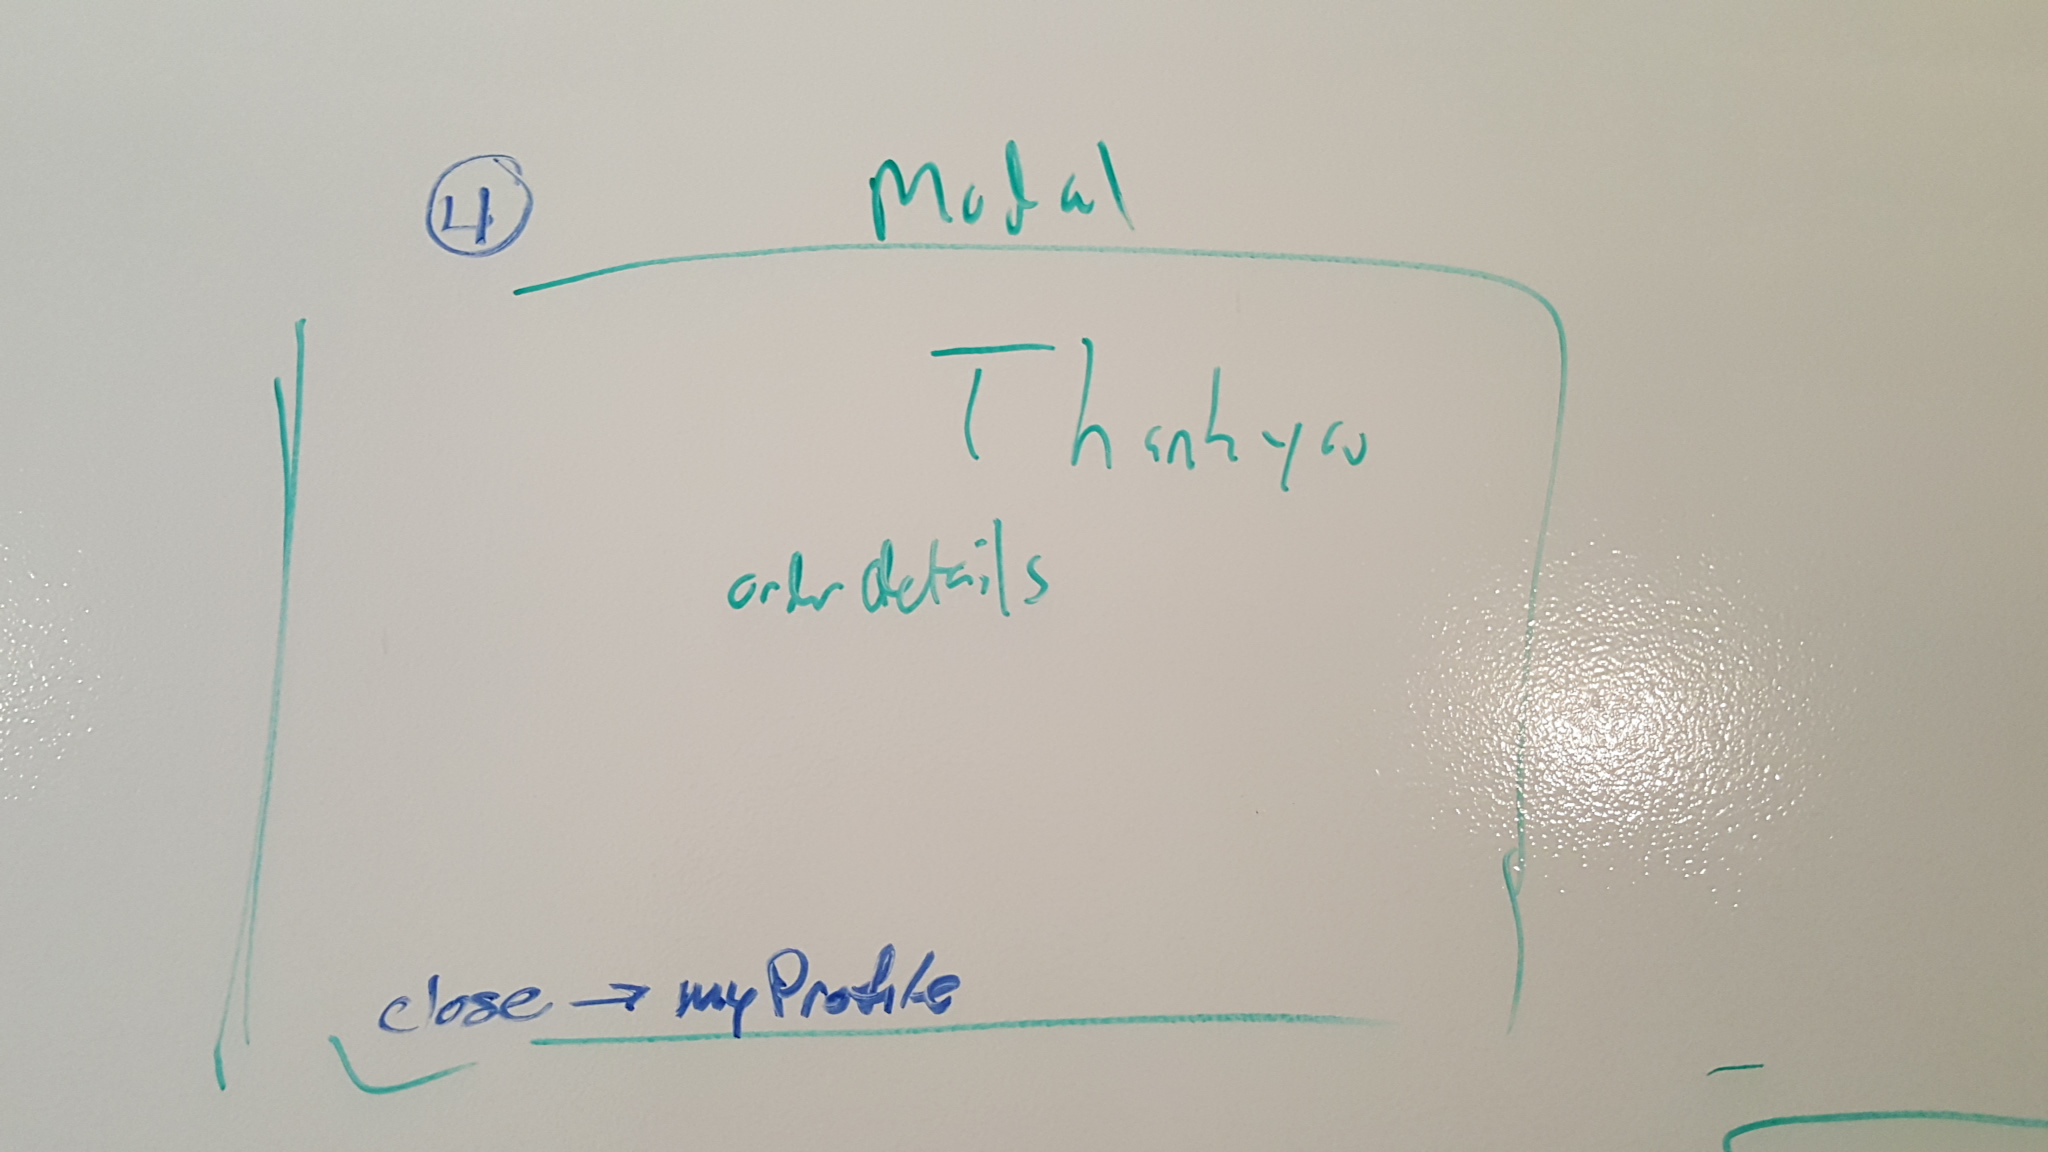 4
Modal
Thank you
order details
close → my Profile